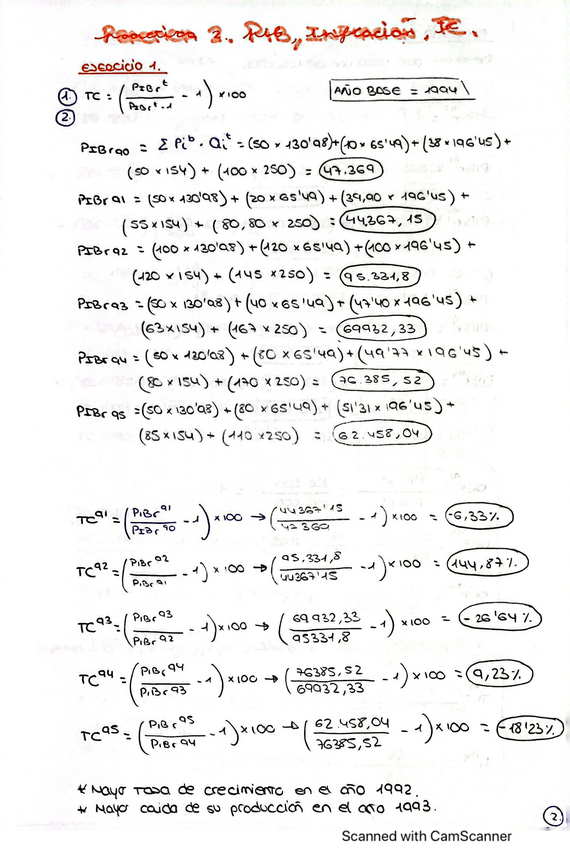 Practica 2. PIB, Inflación, TC.
EJERCICIO 1.
1. TC = (PIBr^t / PIBr^t-1 - 1) × 100 AÑO BASE = 1994
2.
PIBr90 = Σ Pi^b · Qi^t = (50 × 130'98)+(10 × 65'49)+(38 × 196'45)+
(50 × 154) + (100 × 250) = 47.369
PIBr91 = (50 × 130'98) + (20 × 65'49) + (39,90 × 196'45) +
(55 × 154) + (80,80 × 250) = 44.367,15
PIBr92 = (100 × 130'98) + (120 × 65'49) + (100 × 196'45) +
(120 × 154) + (145 × 250) = 95.331,8
PIBr93 = (50 × 130'98) + (40 × 65'49) + (47'40 × 196'45) +
(63 × 154) + (167 × 250) = 69932,33
PIBr94 = (50 × 130'98) + (80 × 65'49) + (49'77 × 196'45) +
(80 × 154) + (170 × 250) = 76.385,52
PIBr95 = (50 × 130'98) + (80 × 65'49) + (51'31 × 196'45) +
(85 × 154) + (110 × 250) = 62.458,04
TC^91 = (PIBr^91 / PIBr^90 - 1) × 100 → (44367'15 / 47369 - 1) × 100 = -6,33%
TC^92 = (PIBr^92 / PIBr^91 - 1) × 100 → (95.331,8 / 44367'15 - 1) × 100 = 144,87%
TC^93 = (PIBr^93 / PIBr^92 - 1) × 100 → (69932,33 / 95331,8 - 1) × 100 = -26'64%
TC^94 = (PIBr^94 / PIBr^93 - 1) × 100 → (76385,52 / 69932,33 - 1) × 100 = 9,23%
TC^95 = (PIBr^95 / PIBr^94 - 1) × 100 → (62.458,04 / 76385,52 - 1) × 100 = -18'23%
* Mayo Tasa de crecimiento en el año 1992.
* Mayo caída de su producción en el año 1993.
2
Scanned with CamScanner